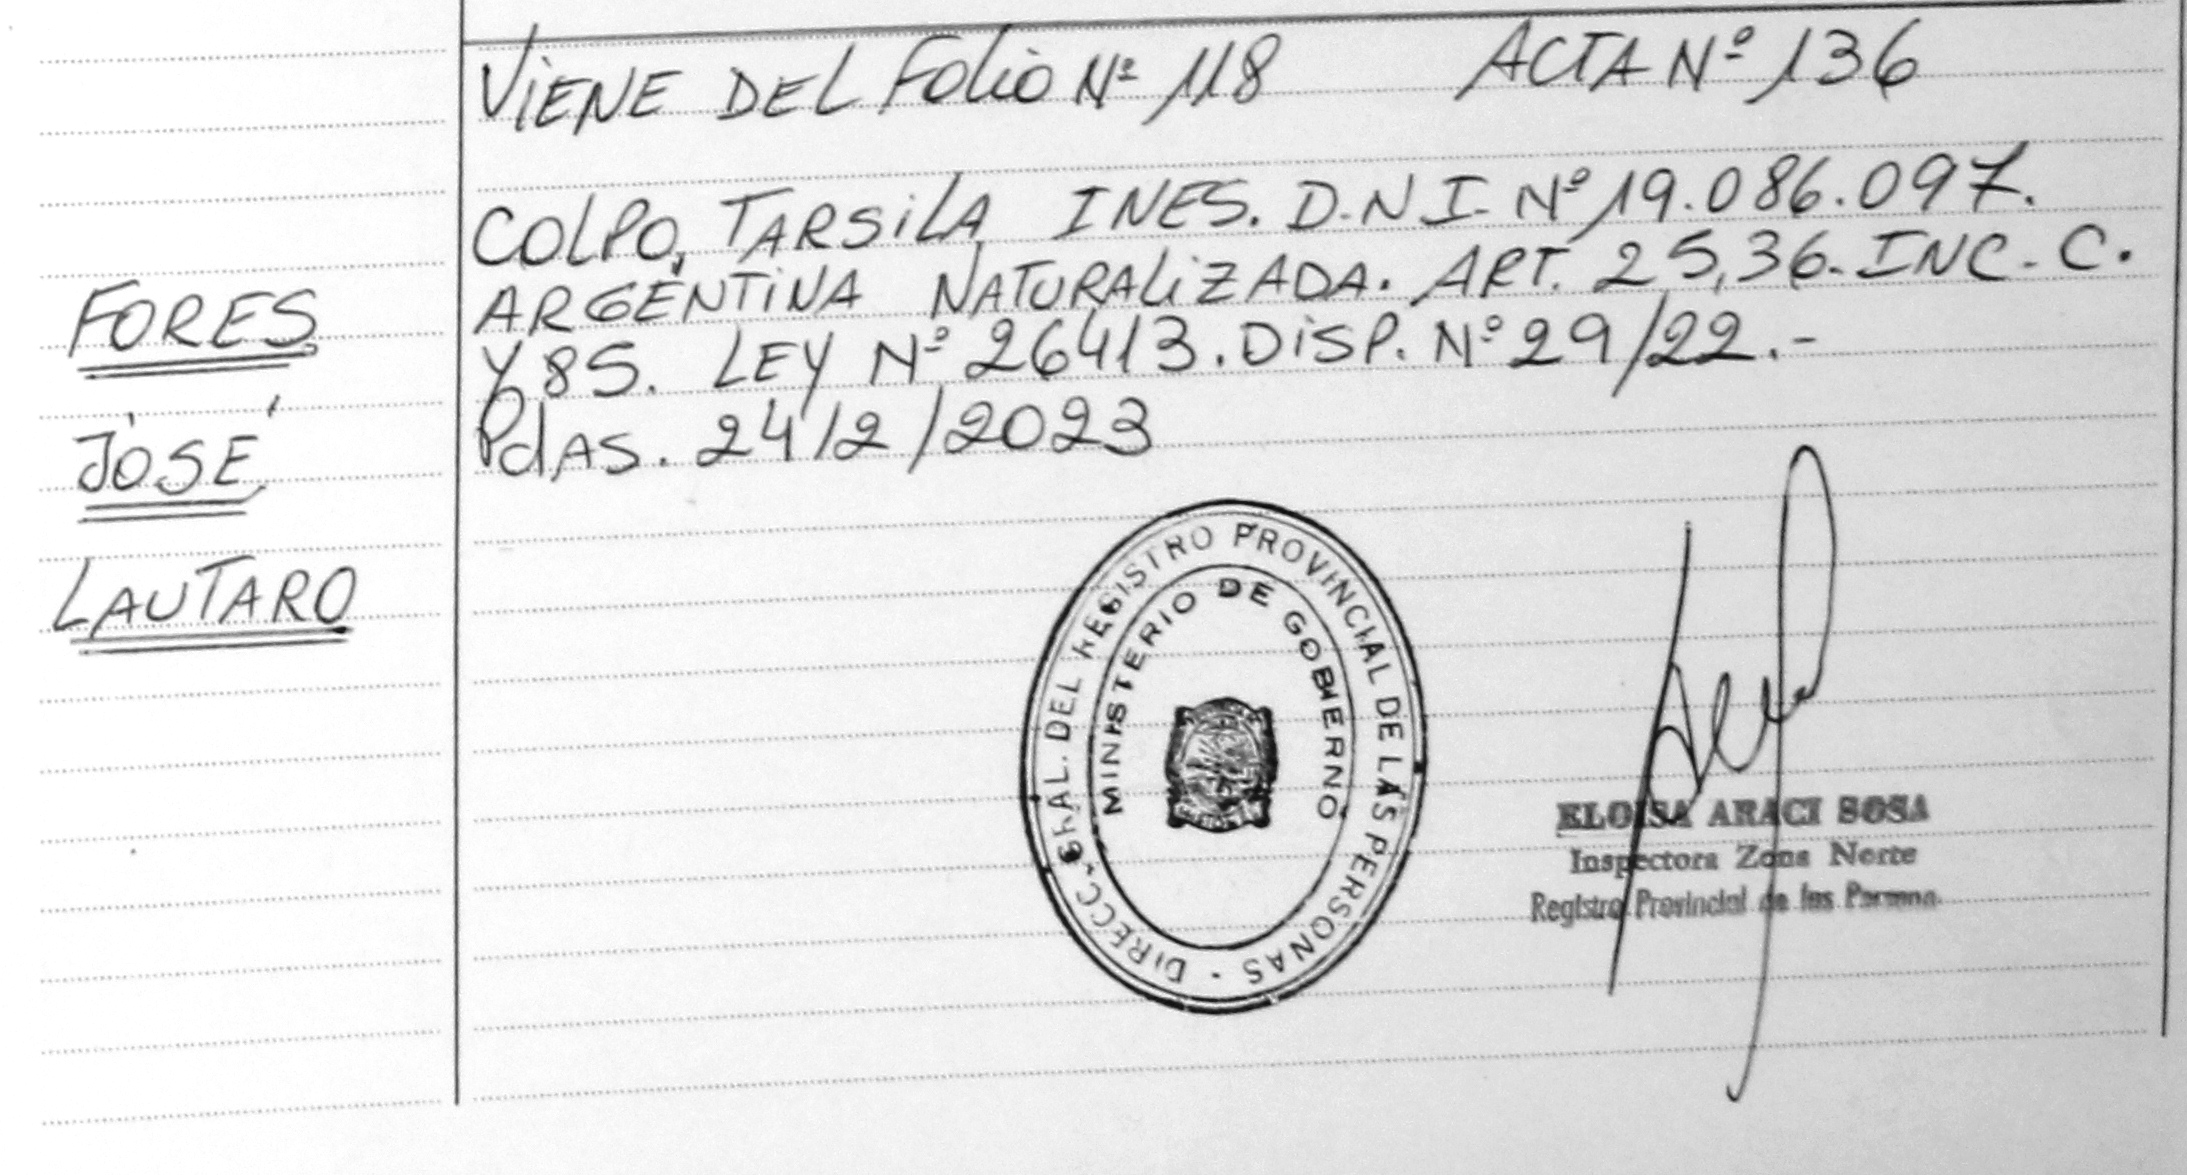 VIENE DEL FOLIO Nº 118 ACTA Nº 136
COLPO, TARSILA INES. D.N I. Nº 19.086.097.
ARGENTINA NATURALIZADA. ART. 25,36. INC. C.
Y 85. LEY Nº 26413. DISP. Nº 29/22.-
PdAS. 24/2/2023
FORES
JOSÉ
LAUTARO
DIRECC. GRAL. DEL REGISTRO PROVINCIAL DE LAS PERSONAS
MINISTERIO DE GOBIERNO
ELOISA ARACI SOSA
Inspectora Zona Norte
Registro Provincial de las Persona